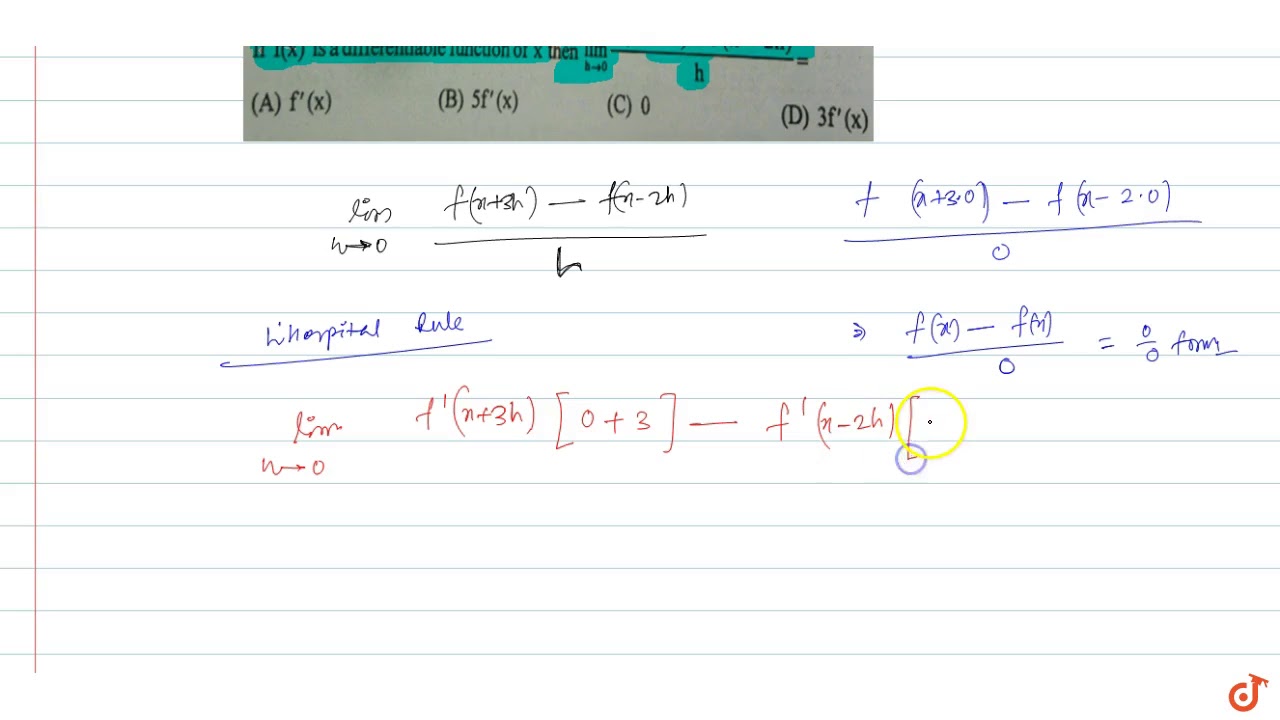 If f(x) is a differentiable function of x then lim h→0 h =
(A) f'(x) (B) 5f'(x) (C) 0 (D) 3f'(x)
lim h→0 f(x+3h) — f(x-2h) / h
f (x+3·0) — f(x-2·0) / 0
L'hospital Rule
⇒ f(x) — f(x) / 0 = 0/0 form
lim h→0 f'(x+3h) [0+3] — f'(x-2h) [